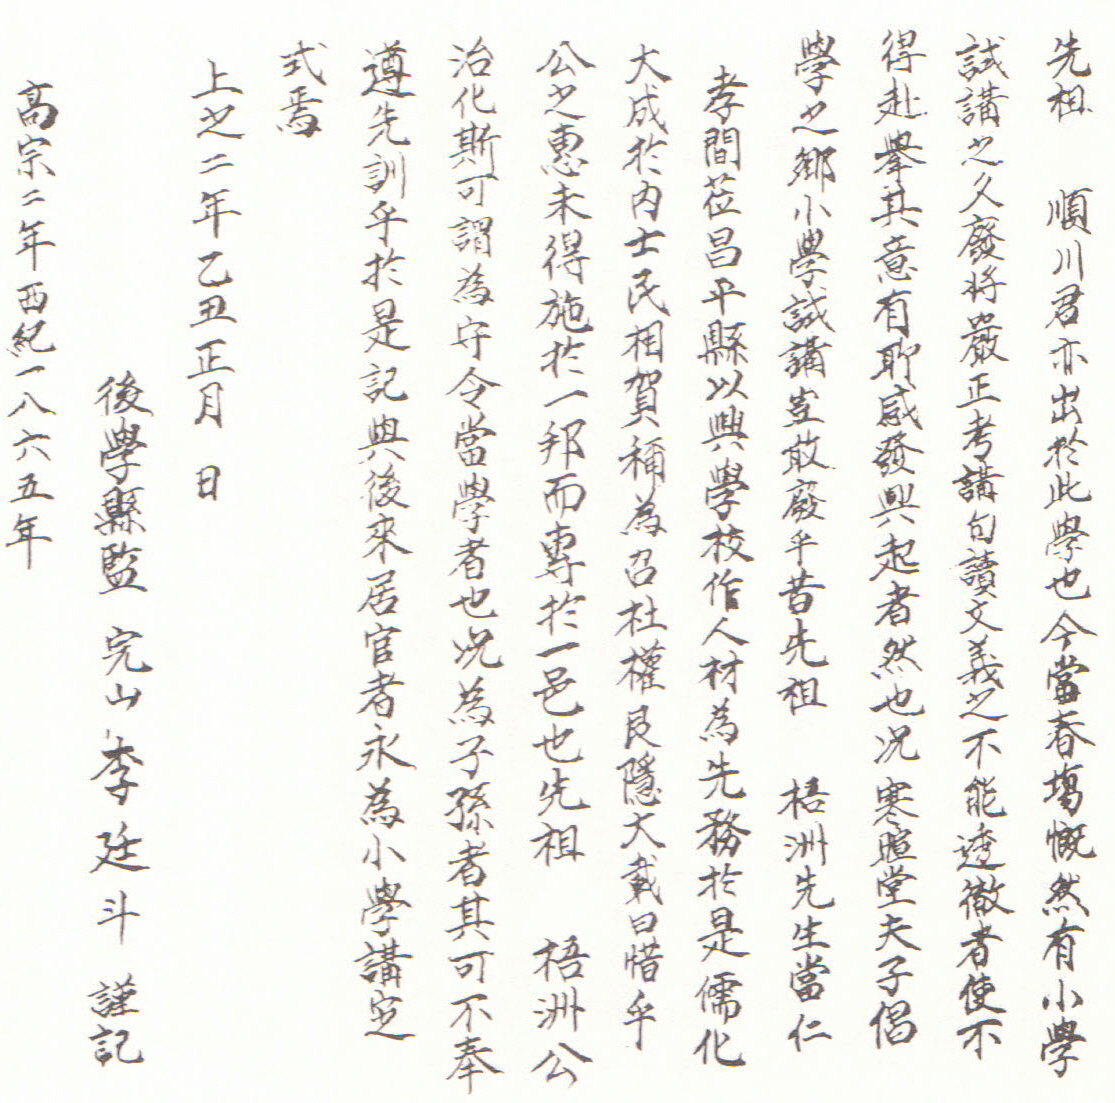 先祖 順川君亦出於此學也今當春塲慨然有小學
試講之久廢將嚴正考講句讀文義之不能透徹者使不
得赴擧其意有所感發興起者然也况寒暄堂夫子倡
學之鄕小學試講豈敢廢乎昔先祖 梧洲先生當仁
孝間莅昌平縣以興學校作人材為先務於是儒化
大成於內士民相賀稱為召杜權良隱大載曰惜乎
公之惠未得施於一邦而專於一邑也先祖 梧洲公
治化斯可謂為守令當學者也况為子孫者其可不奉
遵先訓乎於是記與後來居官者永為小學講定
式焉
上之二年乙丑正月 日
後學縣監 完山 李廷斗 謹記
高宗二年西紀一八六五年